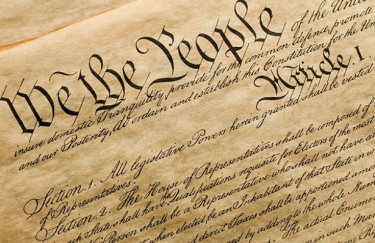 We the People
of the Unit
insure domestic Tranquility, provide for the common defence, promote
and our Posterity, do ordain and establish this Constitution for the Uni
Article. I.
Section. 1. All legislative Powers herein granted shall be vested
of Representatives.
Section. 2. The House of Representatives shall be composed of
each State shall have Qualifications requisite for Electors of the most
No Person shall be a Representative who shall not have at
when elected, be an Inhabitant of that State in w
and direct Taxes shall be apportioned amo
by adding to the whole Num
The actual Enume